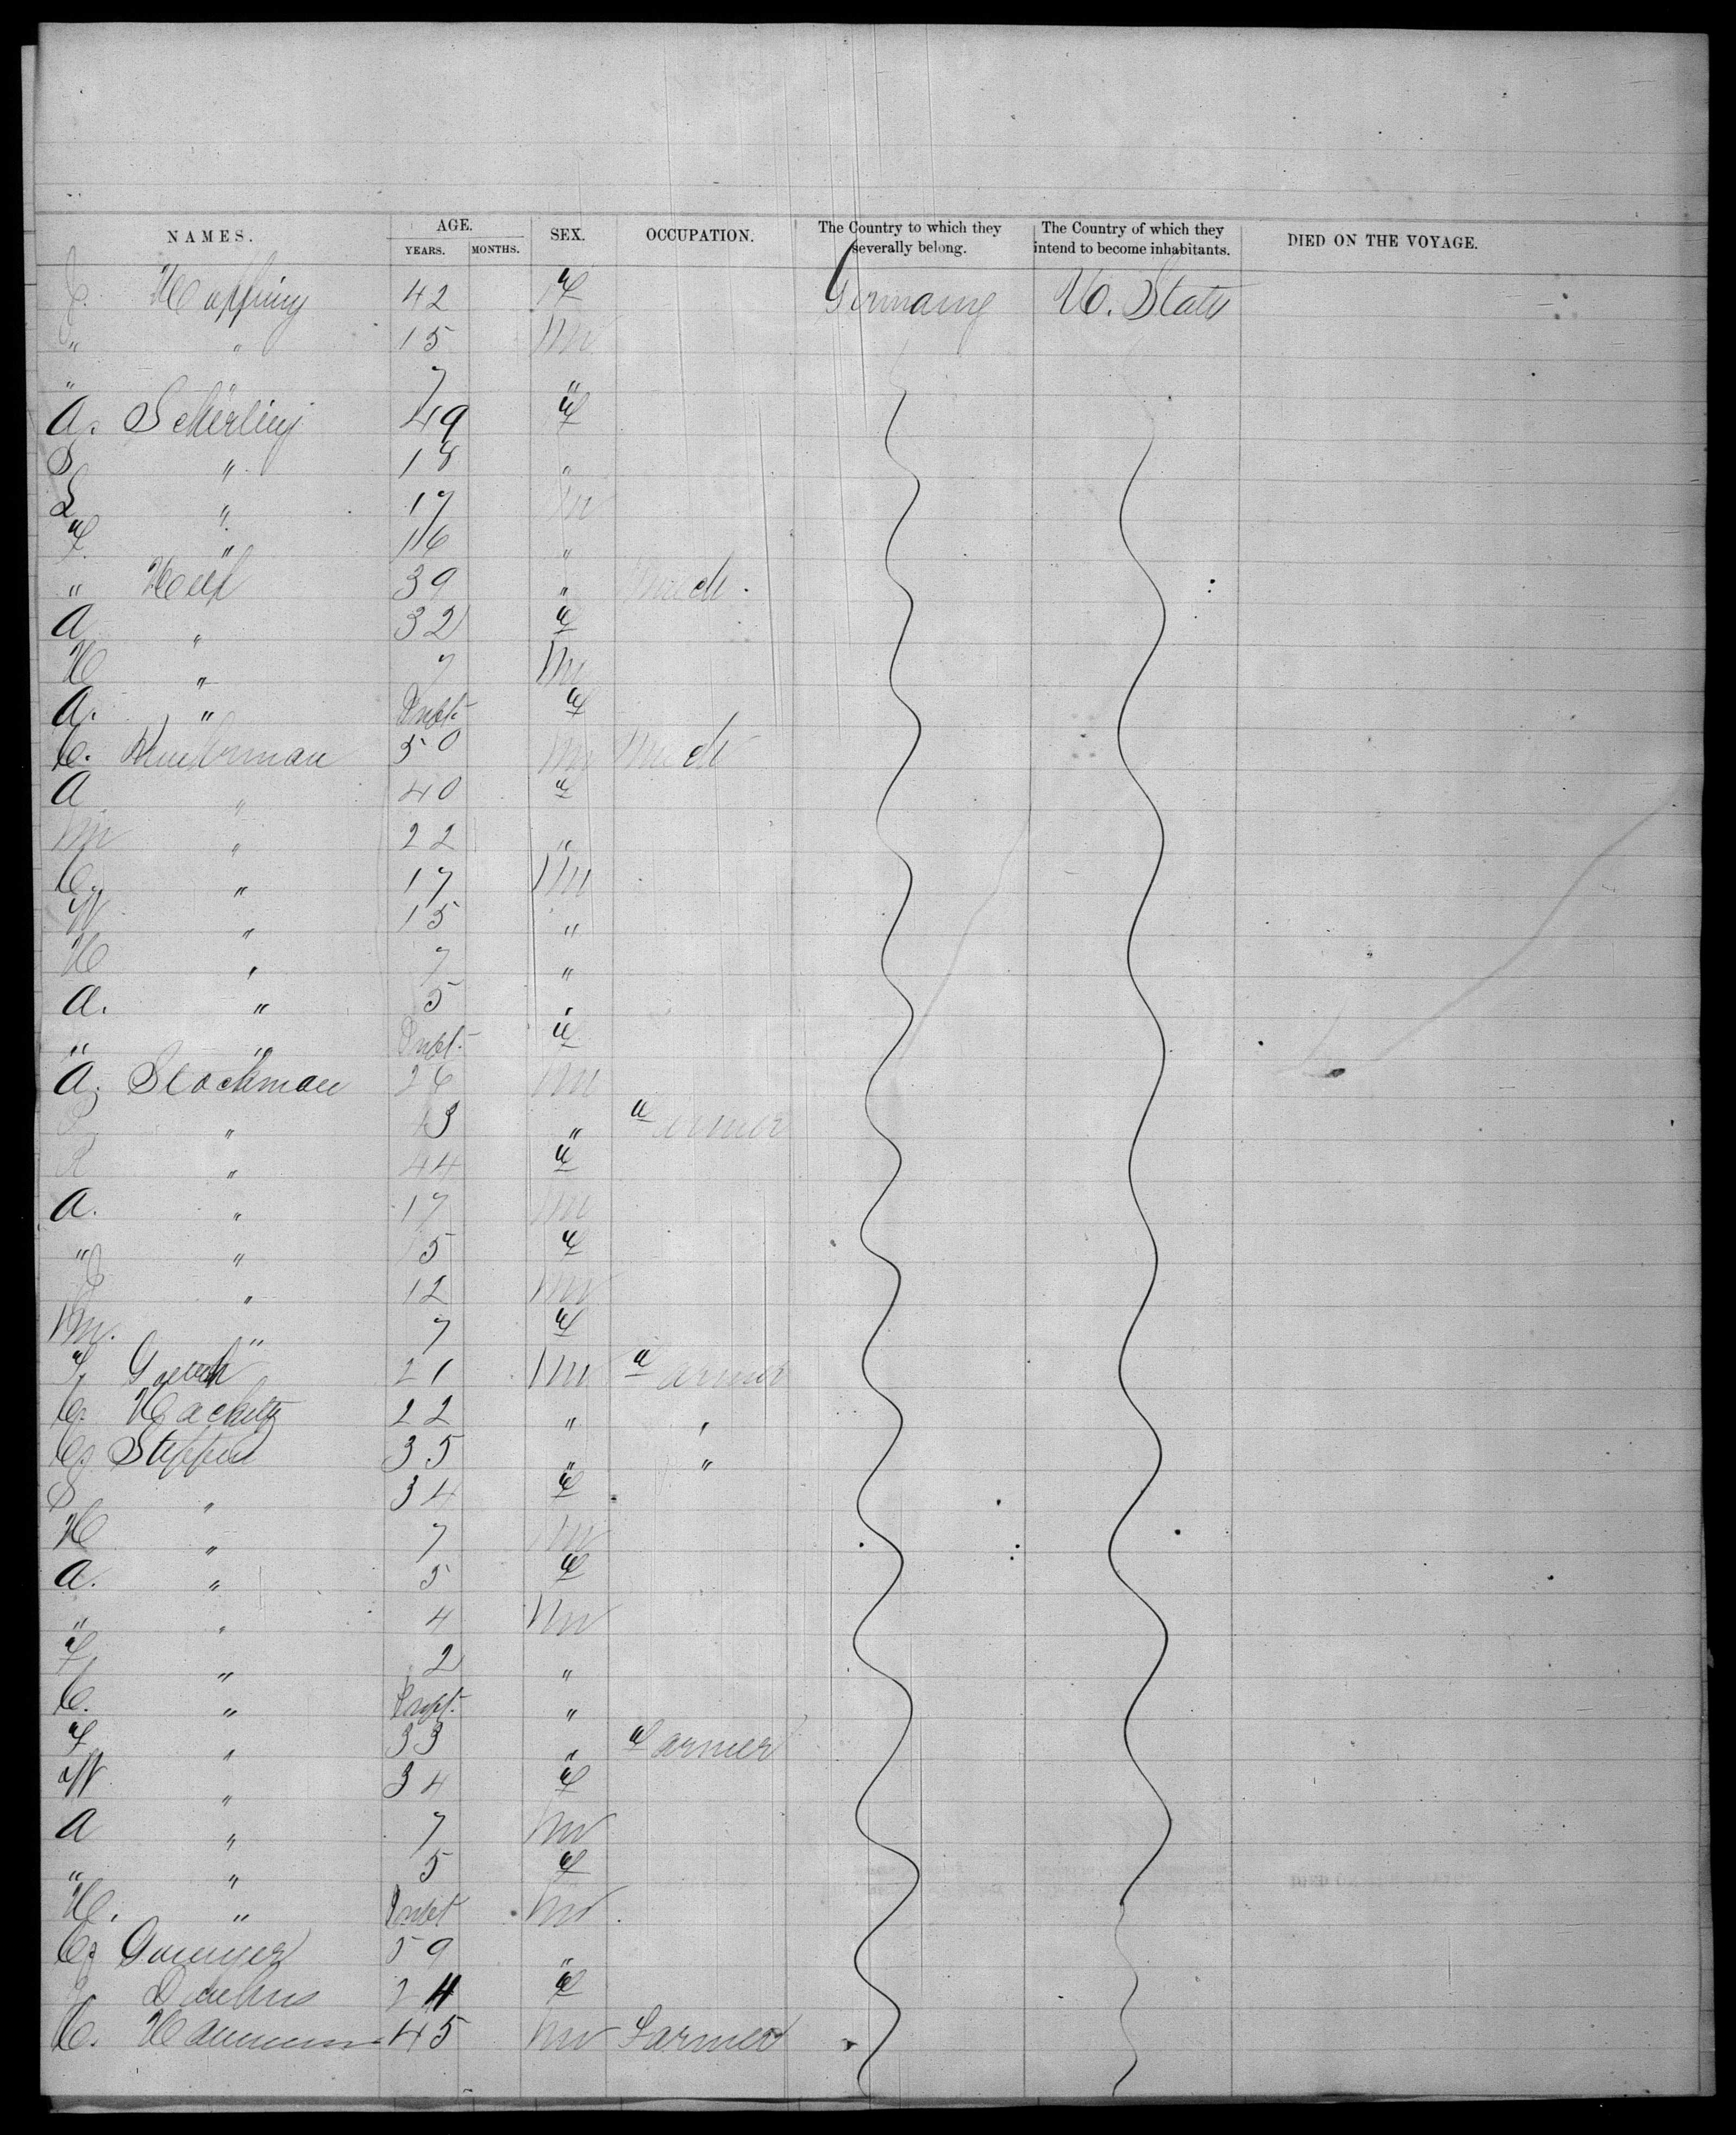 NAMES. AGE. SEX. OCCUPATION. The Country to which they severally belong. The Country of which they intend to become inhabitants. DIED ON THE VOYAGE.
YEARS. MONTHS.
Höffing 42 F Germany U. States
" " 15 M
" 7 "
A. Scherling 49 F
S " 18 "
L " 17 M
F. " 16 "
" 39 "
A " 32 F
H " 7 M
A. " Inft. F
C. 50 M
A " 40 F
M " 22 "
C. " 17 M
W " 15 "
H " 7 "
A. " 5 "
" " Inft. F
A. Stockman 26 M
" 43 " Farmer
R " 44 F
A. " 17 M
" " 15 F
" 12 M
M. " 7 F
F. 21 M Farmer
C. 22 " "
C. Steppen 35 " "
S " 34 F
H " 7 M
A. " 5 F
" " 4 M
F. " 2 "
C. " Inft. "
F " 33 " Farmer
W " 34 F
A " 7 M
" " 5 F
H. " Inft M
C. 59 "
24 F
C. 45 M Farmer